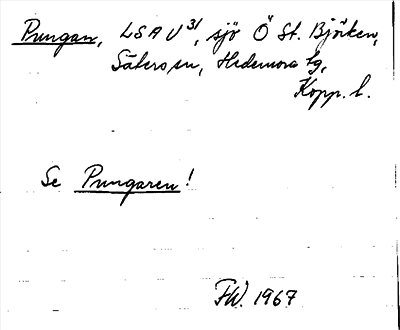 Pungan, LSA V 31, sjö Ö St. Björken,
Säters sn, Hedemora tg,
Kopp. l.
Se Pungaren!
FW. 1967